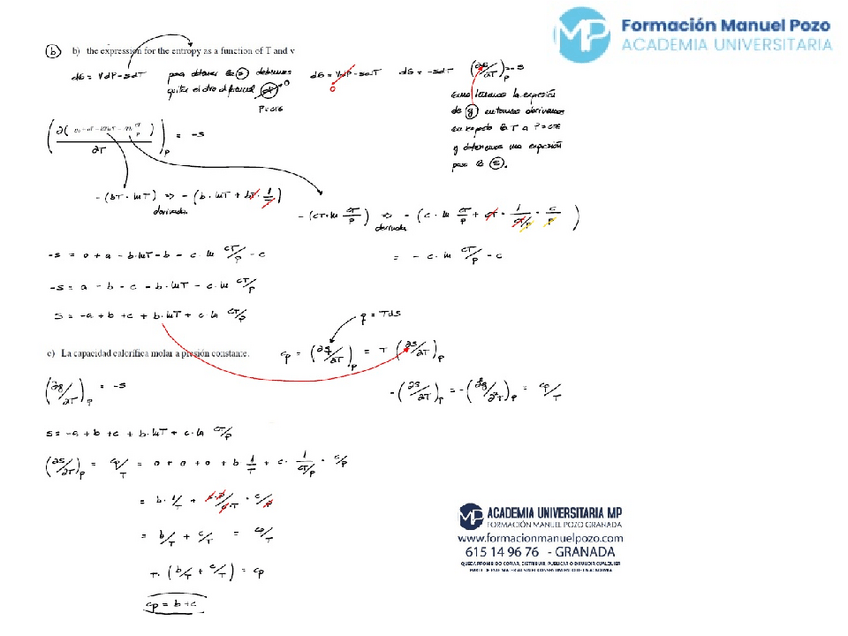 MP Formación Manuel Pozo
ACADEMIA UNIVERSITARIA
b b) the expression for the entropy as a function of T and v
dG = VdP - SdT para obtener debemos quitar el otro diferencial dP → 0
P = cte
dG = VdP - SdT
0
dG = -SdT
(∂G/∂T)_P = -S
la expresión
de g entonces derivamos
con respecto a T a P = cte
y obtenemos una expresión
para S.
∂T = -S
- (bT · lnT) ⇒ - (b · lnT + bT · 1/T)
derivada
- (cT · ln cT/P) ⇒ - (c · ln cT/P + cT · 1/(cT/P) · c/P)
derivada
-S = 0 + a - b·lnT - b - c·ln cT/P - c
= - c · ln cT/P - c
-S = a - b - c - b·lnT - c·ln cT/P
S = -a + b + c + b·lnT + c·ln cT/P
q = TdS
c) La capacidad calorífica molar a presión constante. cp = (∂q/∂T)_P = T (∂S/∂T)_P
(∂g/∂T)_P = -S
S = -a + b + c + b·lnT + c·ln cT/P
(∂S/∂T)_P = cp/T = 0 + 0 + 0 + b 1/T + c · 1/(cT/P) · c/P
= b/T + c/T = cp/T
T · (b/T + c/T) = cp
cp = b + c
MP ACADEMIA UNIVERSITARIA MP
FORMACIÓN MANUEL POZO GRANADA
www.formacionmanuelpozo.com
615 14 96 76 - GRANADA